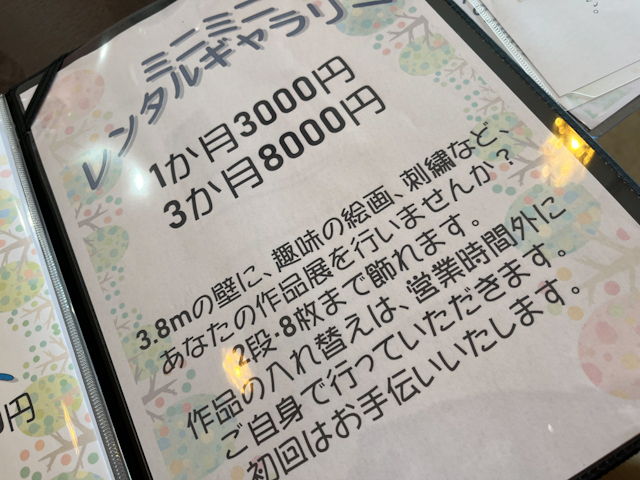 ミニミニ
レンタルギャラリー
1か月3000円
3か月8000円
3.8mの壁に、趣味の絵画、刺繍など、
あなたの作品展を行いませんか？
2段·8枚まで飾れます。
作品の入れ替えは、営業時間外に
ご自身で行っていただきます。
初回はお手伝いいたします。
円